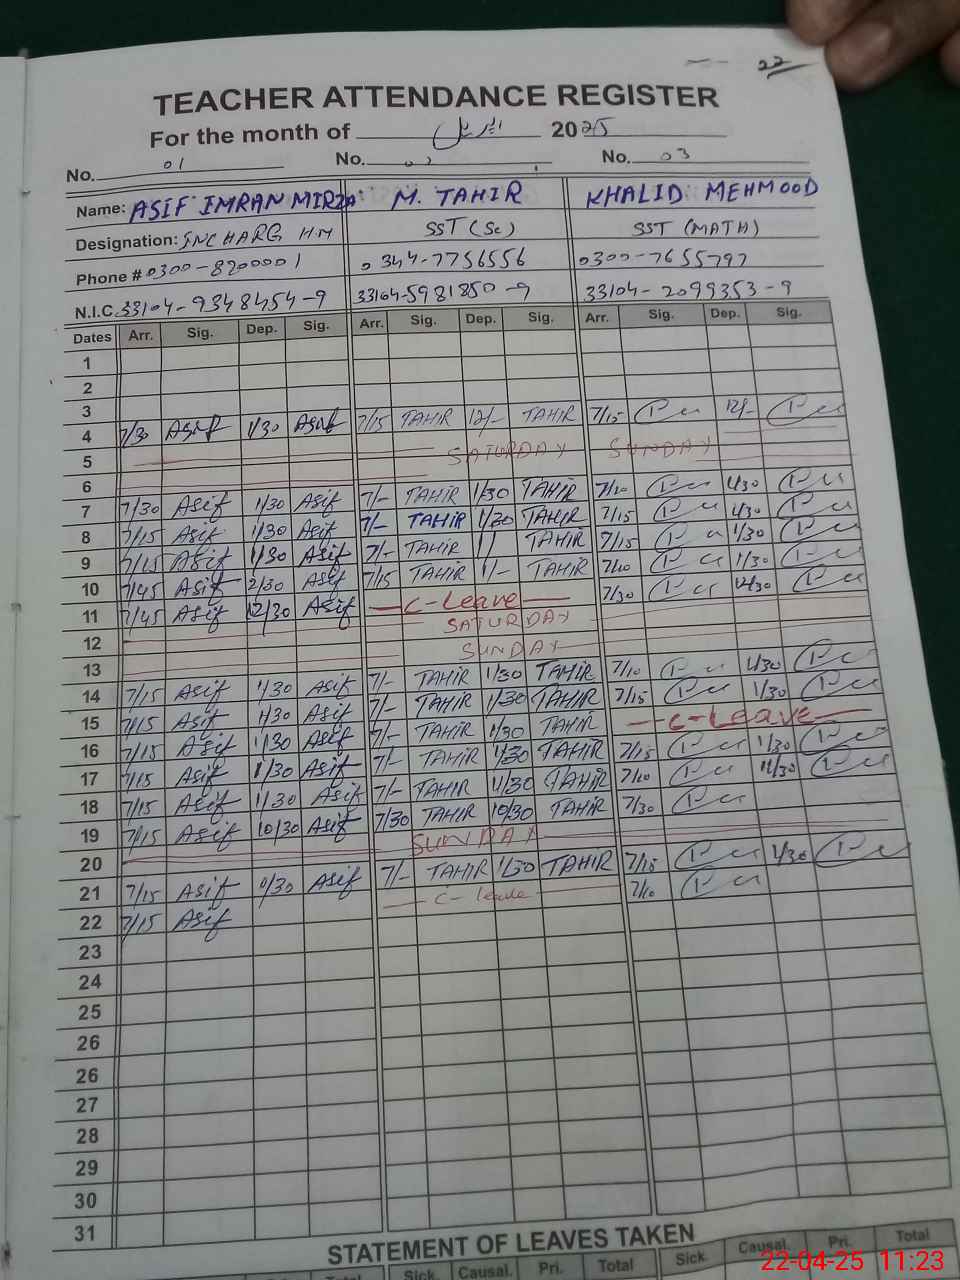 22
TEACHER ATTENDANCE REGISTER
For the month of اپریل 2025
No. 01 No. No. 03
Name: ASIF IMRAN MIRZA M. TAHIR KHALID MEHMOOD
Designation: INCHARG HM SST (Sc) SST (MATH)
Phone # 0300-8200001 0344-7756556 0300-7655797
N.I.C. 33104-9348454-9 33104-5981850-9 33104-2099353-9
Dates Arr. Sig. Dep. Sig. Arr. Sig. Dep. Sig. Arr. Sig. Dep. Sig.
1
2
3
4 7/30 Asif 1/30 Asif 7/15 TAHIR 12/- TAHIR 7/15 12/-
5 SATURDAY SUNDAY
6
7 7/30 Asif 1/30 Asif 7/- TAHIR 1/30 TAHIR 7/20 1/30
8 7/15 Asif 1/30 Asif 7/- TAHIR 1/30 TAHIR 7/15 1/30
9 7/15 Asif 1/30 Asif 7/- TAHIR TAHIR 7/15 1/30
10 7/45 Asif 2/30 Asif 7/15 TAHIR 1/- TAHIR 7/20 1/30
11 7/45 Asif 12/30 Asif C-Leave 7/30 12/30
SATURDAY
12 SUNDAY
13
14 7/15 Asif 1/30 Asif 7/- TAHIR 1/30 TAHIR 7/10 1/30
15 7/15 Asif 1/30 Asif 7/- TAHIR 1/30 TAHIR 7/15 1/30
16 7/15 Asif 1/30 Asif 7/- TAHIR 1/30 TAHIR C-Leave
17 7/15 Asif 1/30 Asif 7/- TAHIR 1/30 TAHIR 7/15 1/30
18 7/15 Asif 11/30 Asif 7/- TAHIR 11/30 TAHIR 7/20 11/30
19 7/15 Asif 10/30 Asif 7/30 TAHIR 10/30 TAHIR 7/30
20 SUNDAY
21 7/15 Asif 1/30 Asif 7/- TAHIR 1/30 TAHIR 7/15 1/30
22 7/15 Asif C-leave 7/10
23
24
25
26
26
27
28
29
30
31
STATEMENT OF LEAVES TAKEN
Total Sick. Causal. Pri. Total Sick. Causal. Pri. Total
22-04-25 11:23